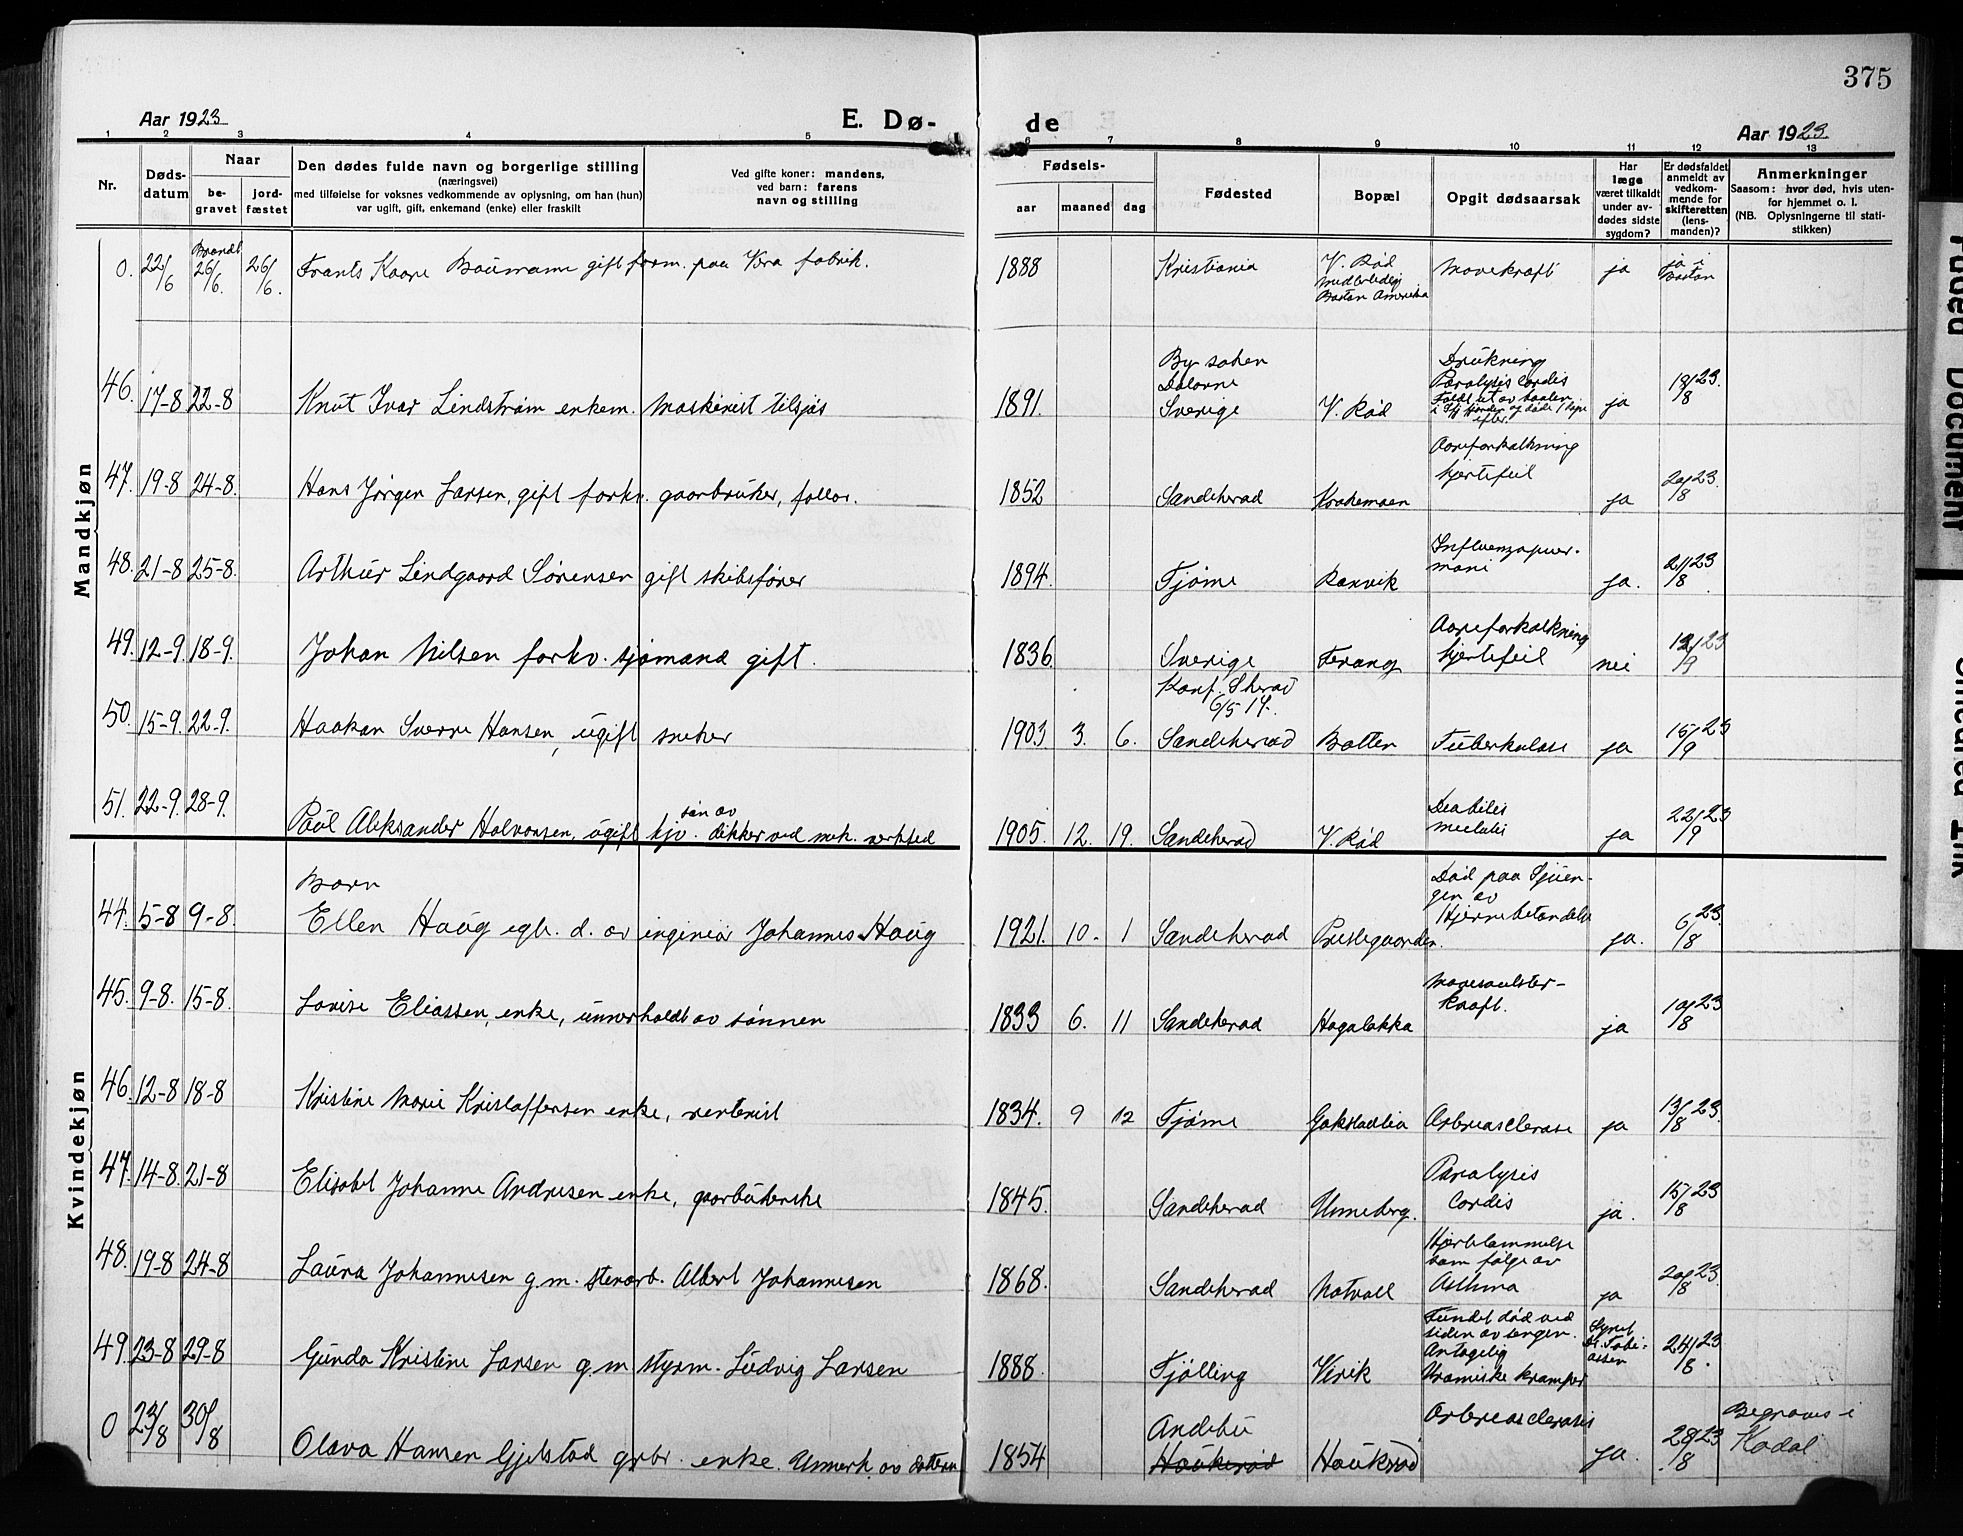 375
Aar 1923 E. Dø- de Aar 1923
1 2 3 4 5 6 7 8 9 10 11 12 13
Nr. Døds-datum Naar be-gravet jord-fæstet Den dødes fulde navn og borgerlige stilling (næringsvei) med tilføielse for voksnes vedkommende av oplysning, om han (hun) var ugift, gift, enkemand (enke) eller fraskilt Ved gifte koner: mandens, ved barn: farens navn og stilling Fødsels- aar maaned dag Fødested Bopæl Opgit dødsaarsak Har læge været tilkaldt under av-dødes sidste sygdom? Er dødsfaldet anmeldt av vedkom-mende for skifteretten (lens-manden)? Anmerkninger Saasom: hvor død, hvis uten-for hjemmet o. l. (NB. Oplysningerne til stati-stikken)
Mandkjøn
0. 22/6 Brændt 26/6. 26/6. Frants Kaare Baumann gift form. paa Vera fabrik. 1888 Kristiania V. Rød midlertidig Boston Amerika Mavekræft ja ja i Boston
46. 17-8 22-8 Knut Ivar Lindstrøm enkem. maskinist tilsjøs 1891. By sokn Dalarne Sverige V. Rød Drukning Paralysis cordis ja 18/8 23.
47. 19-8 24-8. Hans Jørgen Larsen, gift forhv. gaarbruker, 1852 Sandeherad Krokemoen Aareforkalkning hjertefeil ja 20/8 23.
48. 21-8 25-8. Arthur Lindgaard Sørensen gift skibsfører 1894. Tjøme Ranvik Influenzapneu-moni ja. 21/8 23
49. 12-9. 18-9. Johan Nilsen forhv. sjømand gift. 1836. Sverige Førang Aareforkalkning hjertefeil nei 12/9 23
50. 15-9. 22-9. Haakon Sverre Hansen, ugift sneker 1903 3. 6. Konf. Sherad 6/5 17. Sandeherad Botten Tuberkulose ja 15/9 23
51. 22-9. 28-9. Paul Aleksander Halvorsen, ugift søn av hjv. dikker ved mek. verksted 1905. 12. 19. Sandeherad V. Rød Deabetes meletis ja 22/9 23
Kvindekjøn
44. 5-8 9-8. Barn Ellen Haug egte. d. av ingeniør Johannes Haug 1921. 10. 1 Sandeherad Prestegaarden. Død paa Sjuen-gen av Hjernebetændelse ja. 6/8 23.
45. 9-8. 15-8. Lovise Eliassen, enke, underholdt av sønnen 1833 6. 11 Sandeherad Hagaløkka Mavesvulster- kræft. ja 10/8 23
46. 12-8 18-8 Kristine Marie Kristoffersen enke, rentenist 1834. 9 12 Tjøme Gokstadlia Arteriosclerose ja 13/8 23.
47. 14-8. 21-8 Elisabet Johanne Andresen enke, gaarbukerske 1845. Sandeherad Unneberg. Paralysis Cordis ja. 15/8 23
48. 19-8 24-8 Laura Johannesen g.m. stenarb. Albert Johannesen 1868. Sandeherad Natvall Hjertelammelse som følge av Asthma ja 20/8 23.
49. 23-8 29-8 Gunda Kristine Larsen g.m styrm. Ludvig Larsen 1888. Tjølling Virik Fundet død ved siden av sengen. Antagelig Uræmiske kramper Synet Dr. Tobi-assen 24/8 23.
0 23/8 30/8 Olava Hansen Gjelstad grbr. enke. Underh. av datteren 1854 Andebu Haukerød Haukerød Arteriosclerosis ja. 28/8 23 Begraves i Kodal
Faded Document
Smeared Ink